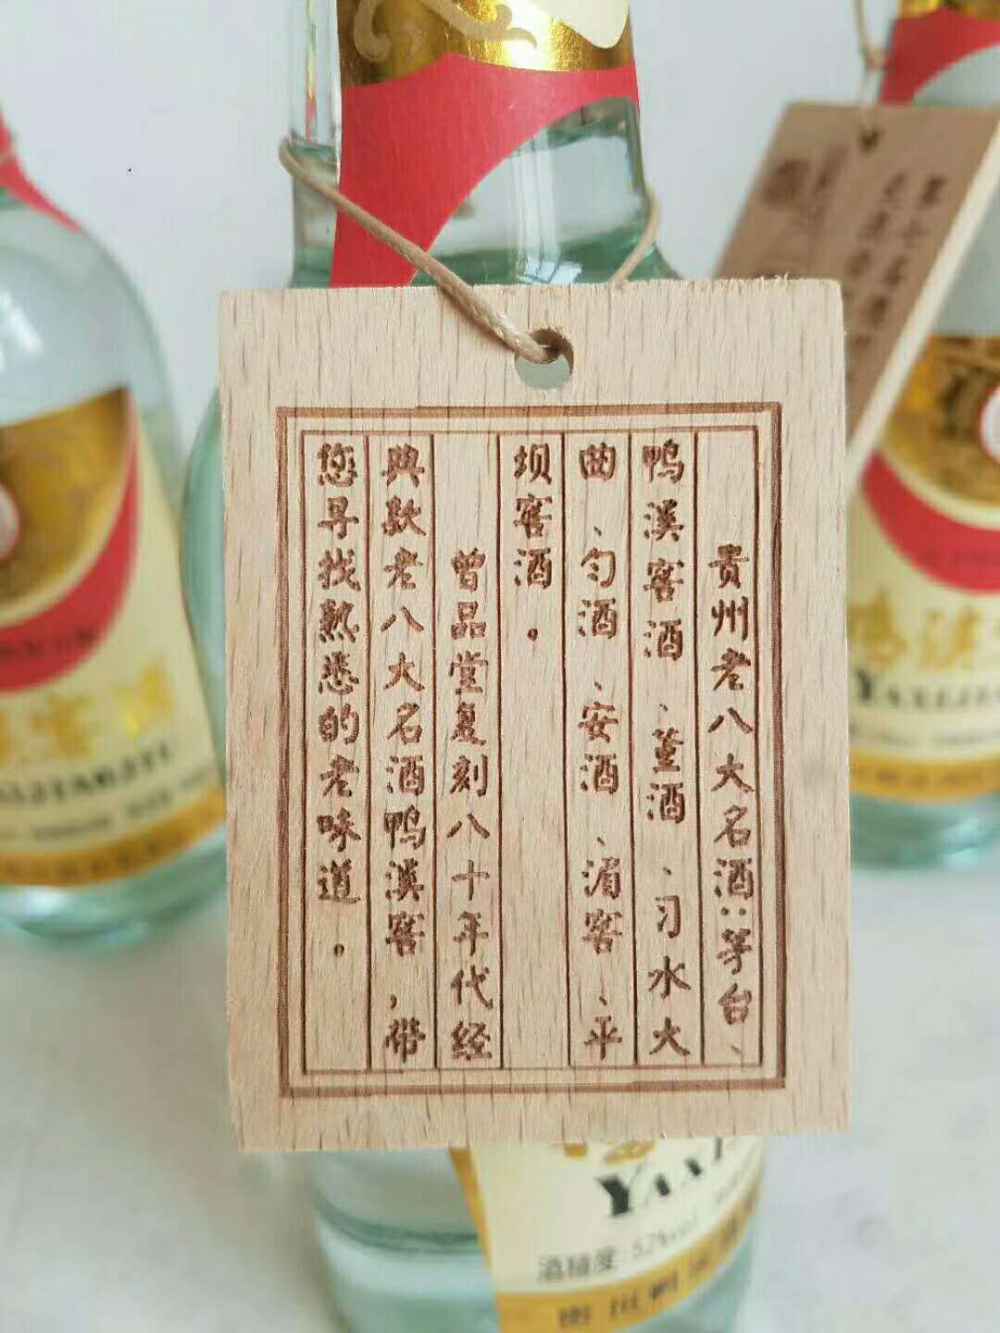 贵州老八大名酒:茅台、
鸭溪窖酒、董酒、习水大
曲、匀酒、安酒、湄窖、平
坝窖酒。
曾品堂复刻八十年代经
典款老八大名酒鸭溪窖,带
您寻找熟悉的老味道。
酒精度:52%vol